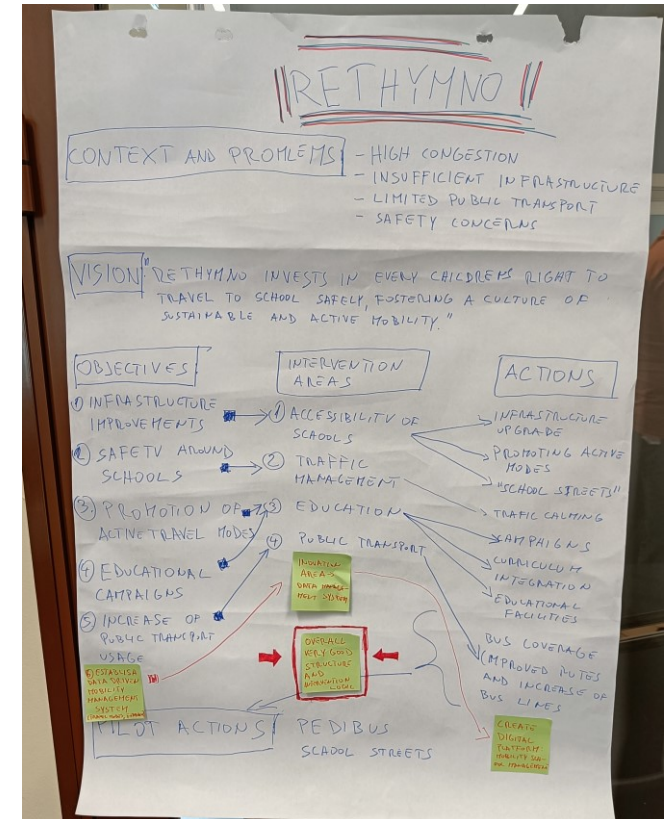 RETHYMNO
CONTEXT AND PROMLEMS
- HIGH CONGESTION
- INSUFFICIENT INFRASTRUCTURE
- LIMITED PUBLIC TRANSPORT
- SAFETY CONCERNS
VISION "RETHYMNO INVESTS IN EVERY CHILDRENS RIGHT TO
TRAVEL TO SCHOOL SAFELY, FOSTERING A CULTURE OF
SUSTAINABLE AND ACTIVE MOBILITY."
OBJECTIVES
① INFRASTRUCTURE
IMPROVEMENTS
② SAFETY AROUND
SCHOOLS
③ PROMOTION OF
ACTIVE TRAVEL MODES
④ EDUCATIONAL
CAMPAIGNS
⑤ INCREASE OF
PUBLIC TRANSPORT
USAGE
⑥ ESTABLISH
DATA DRIVEN
MOBILITY
MANAGEMENT
SYSTEM
INTERVENTION
AREAS
① ACCESSIBILITY OF
SCHOOLS
② TRAFFIC
MANAGEMENT
③ EDUCATION
④ PUBLIC TRANSPORT
AREAS
DATA MANAGE-
MENT SYSTEM
OVERALL
VERY GOOD
STRUCTURE
AND
INTERVENTION LOGIC
ACTIONS
INFRASTRUCTURE
UPGRADE
PROMOTING ACTIVE
MODES
"SCHOOL STREETS"
TRAFIC CALMING
CAMPAIGNS
CURRICULUM
INTEGRATION
EDUCATIONAL
FACILITIES
BUS COVERAGE
IMPROVED RUTES
AND INCREASE OF
BUS LINES
CREATE
DIGITAL
PLATFORM:
MOBILITY DA-
TA MANAGEMENT
PILOT ACTIONS
PEDIBUS
SCHOOL STREETS